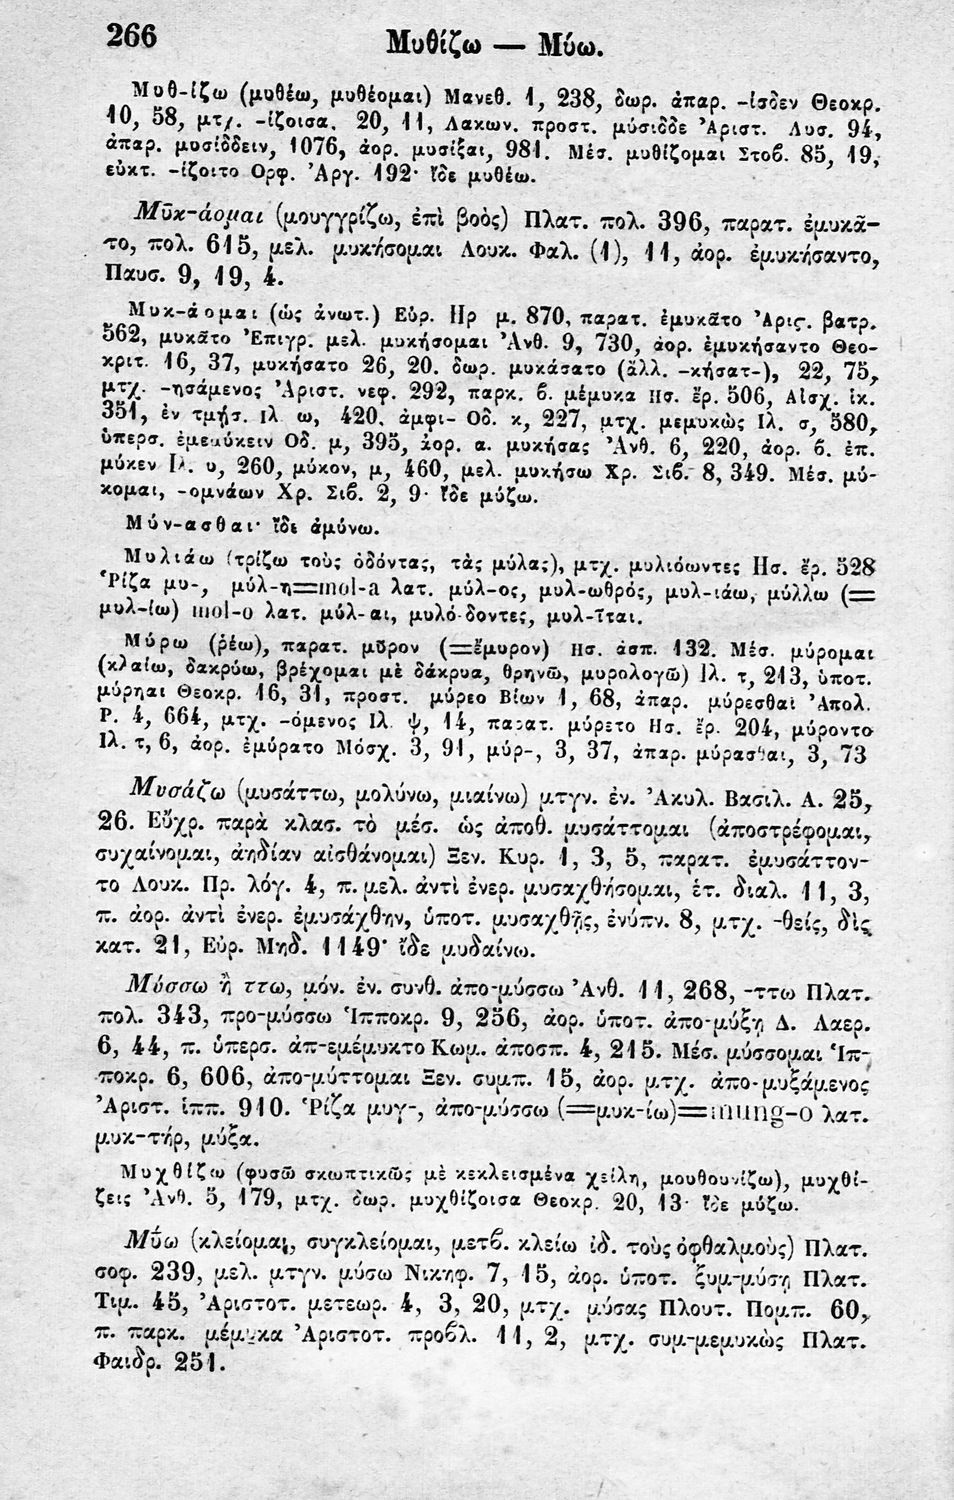 266
Μυθίζω — Μύω.
Μυθ-ίζω (μυθέω, μυθέομαι) Μανεθ. 1, 238, δωρ. ἀπαρ. -ίσδεν Θεοκρ.
10, 58, μτχ. -ίζοισα. 20, 11, Λακων. προστ. μύσιδδε Ἀριστ. Λυσ. 94,
ἀπαρ. μυσίδδειν, 1076, ἀορ. μυσίξαι, 981. Μέσ. μυθίζομαι Στοβ. 85, 19,
εὐκτ. -ίζοιτο Ορφ. Ἀργ. 192· ἴδε μυθέω.
Μῡκ-άομαι (μουγγρίζω, ἐπὶ βοὸς) Πλατ. πολ. 396, παρατ. ἐμυκᾶ-
το, πολ. 615, μελ. μυκήσομαι Λουκ. Φαλ. (1), 11, ἀορ. ἐμυκήσαντο,
Παυσ. 9, 19, 4.
Μυκ-άομαι (ὡς ἀνωτ.) Εὐρ. Ηρ μ. 870, παρατ. ἐμυκᾶτο Ἀρις. βατρ.
562, μυκᾶτο Ἐπιγρ. μελ. μυκήσομαι Ἀνθ. 9, 730, ἀορ. ἐμυκήσαντο Θεο-
κριτ. 16, 37, μυκήσατο 26, 20. δωρ. μυκάσατο (ἄλλ. -κήσατ-), 22, 75,
μτχ. -ησάμενος Ἀριστ. νεφ. 292, παρκ. β. μέμυκα Ησ. ἔρ. 506, Αἰσχ. ἱκ.
351, ἐν τμήσ. Ιλ ω, 420. ἀμφι- Οδ. κ, 227, μτχ. μεμυκὼς Ιλ. σ, 580,
ὑπερσ. ἐμεμύκειν Οδ. μ, 395, ἀορ. α. μυκήσας Ἀνθ. 6, 220, ἀορ. β. ἐπ.
μύκεν Ιλ. υ, 260, μύκον, μ, 460, μελ. μυκήσω Χρ. Σιβ. 8, 349. Μέσ. μύ-
κομαι, -ομνάων Χρ. Σιβ. 2, 9· ἴδε μύζω.
Μύν-ασθαι· ἴδε ἀμύνω.
Μυλιάω (τρίζω τοὺς ὀδόντας, τὰς μύλας), μτχ. μυλιόωντες Ησ. ἔρ. 528
Ῥίζα μυ-, μύλ-η=mol-a λατ. μύλ-ος, μυλ-ωθρός, μυλ-ιάω, μύλλω (=
μυλ-ίω) mol-o λατ. μύλ-αι, μυλό-δοντες, μυλ-ῖται.
Μύρω (ῥέω), παρατ. μῦρον (=ἔμυρον) Ησ. ἀσπ. 132. Μέσ. μύρομαι
(κλαίω, δακρύω, βρέχομαι μὲ δάκρυα, θρηνῶ, μυρολογῶ) Ιλ. τ, 213, ὑποτ.
μύρηαι Θεοκρ. 16, 31, προστ. μύρεο Βίων 1, 68, ἀπαρ. μύρεσθαι Ἀπολ.
Ρ. 4, 664, μτχ. -όμενος Ιλ ψ, 14, παρατ. μύρετο Ησ. ἔρ. 204, μύροντο
Ιλ. τ, 6, ἀορ. ἐμύρατο Μόσχ. 3, 91, μύρ-, 3, 37, ἀπαρ. μύρασθαι, 3, 73
Μυσάζω (μυσάττω, μολύνω, μιαίνω) μτγν. ἐν. Ἀκυλ. Βασιλ. Α. 25,
26. Εὔχρ. παρὰ κλασ. τὸ μέσ. ὡς ἀποθ. μυσάττομαι (ἀποστρέφομαι,
συχαίνομαι, ἀηδίαν αἰσθάνομαι) Ξεν. Κυρ. 1, 3, 5, παρατ. ἐμυσάττον-
το Λουκ. Πρ. λόγ. 4, π. μελ. ἀντὶ ἐνερ. μυσαχθήσομαι, ἑτ. διαλ. 11, 3,
π. ἀορ. ἀντὶ ἐνερ. ἐμυσάχθην, ὑποτ. μυσαχθῇς, ἐνύπν. 8, μτχ. -θείς, δὶς
κατ. 21, Εὐρ. Μηδ. 1149· ἴδε μυδαίνω.
Μύσσω ἢ ττω, μόν. ἐν. συνθ. ἀπο-μύσσω Ἀνθ. 11, 268, -ττω Πλατ.
πολ. 343, προ-μύσσω Ἱπποκρ. 9, 256, ἀορ. ὑποτ. ἀπο-μύξῃ Δ. Λαερ.
6, 44, π. ὑπερσ. ἀπ-εμέμυκτο Κωμ. ἀποσπ. 4, 215. Μέσ. μύσσομαι Ἱπ-
ποκρ. 6, 606, ἀπο-μύττομαι Ξεν. συμπ. 15, ἀορ. μτχ. ἀπο-μυξάμενος
Ἀριστ. ἱππ. 910. Ῥίζα μυγ-, ἀπο-μύσσω (=μυκ-ίω)=mung-o λατ.
μυκ-τήρ, μύξα.
Μυχθίζω (φυσῶ σκωπτικῶς μὲ κεκλεισμένα χείλη, μουθουνίζω), μυχθί-
ζεις Ἀνθ. 5, 179, μτχ. δωρ. μυχθίζοισα Θεοκρ. 20, 13· ἴδε μύζω.
Μύω (κλείομαι, συγκλείομαι, μετβ. κλείω ἰδ. τοὺς ὀφθαλμοὺς) Πλατ.
σοφ. 239, μελ. μτγν. μύσω Νικηφ. 7, 15, ἀορ. ὑποτ. ξυμ-μύσῃ Πλατ.
Τιμ. 45, Ἀριστοτ. μετεωρ. 4, 3, 20, μτχ. μύσας Πλουτ. Πομπ. 60,
π. παρκ. μέμυκα Ἀριστοτ. προβλ. 11, 2, μτχ. συμ-μεμυκὼς Πλατ.
Φαιδρ. 251.